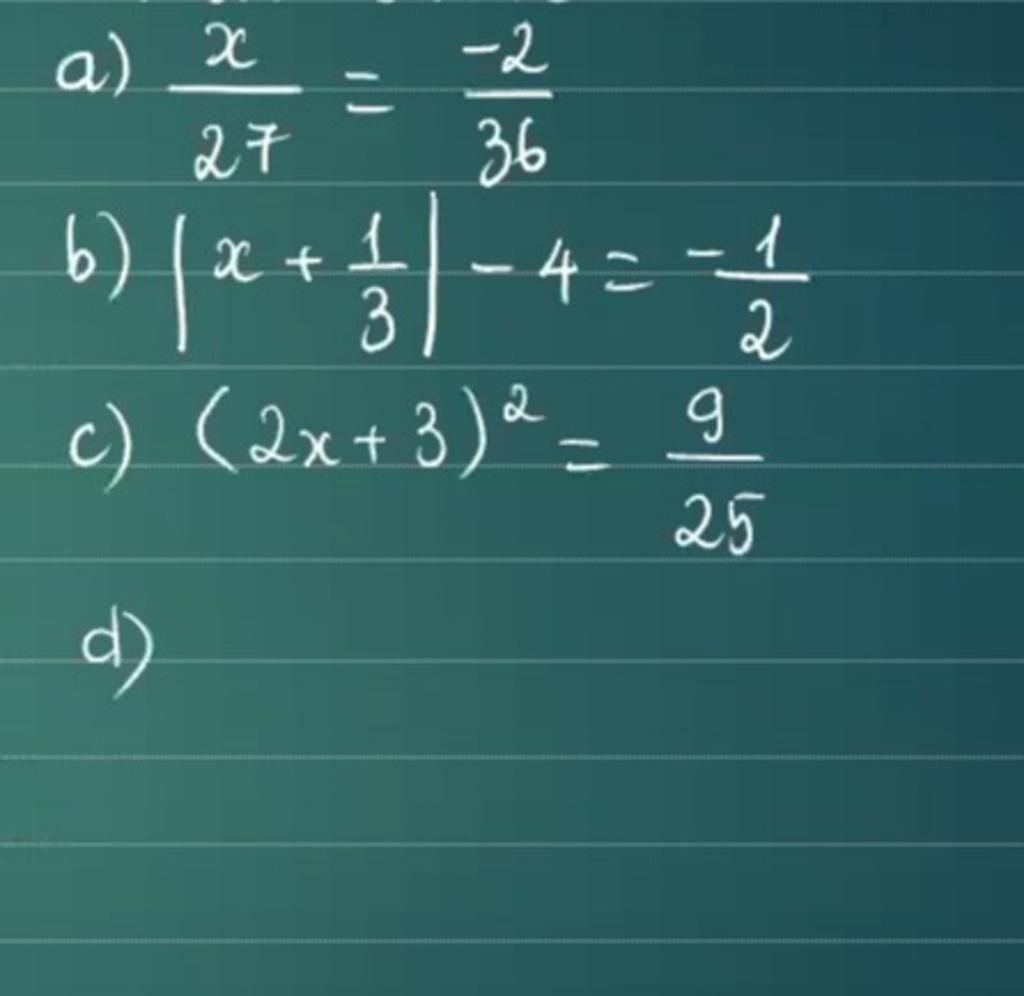 a) x/27 = -2/36
b) |x + 1/3| - 4 = -1/2
c) (2x + 3)² = 9/25
d)